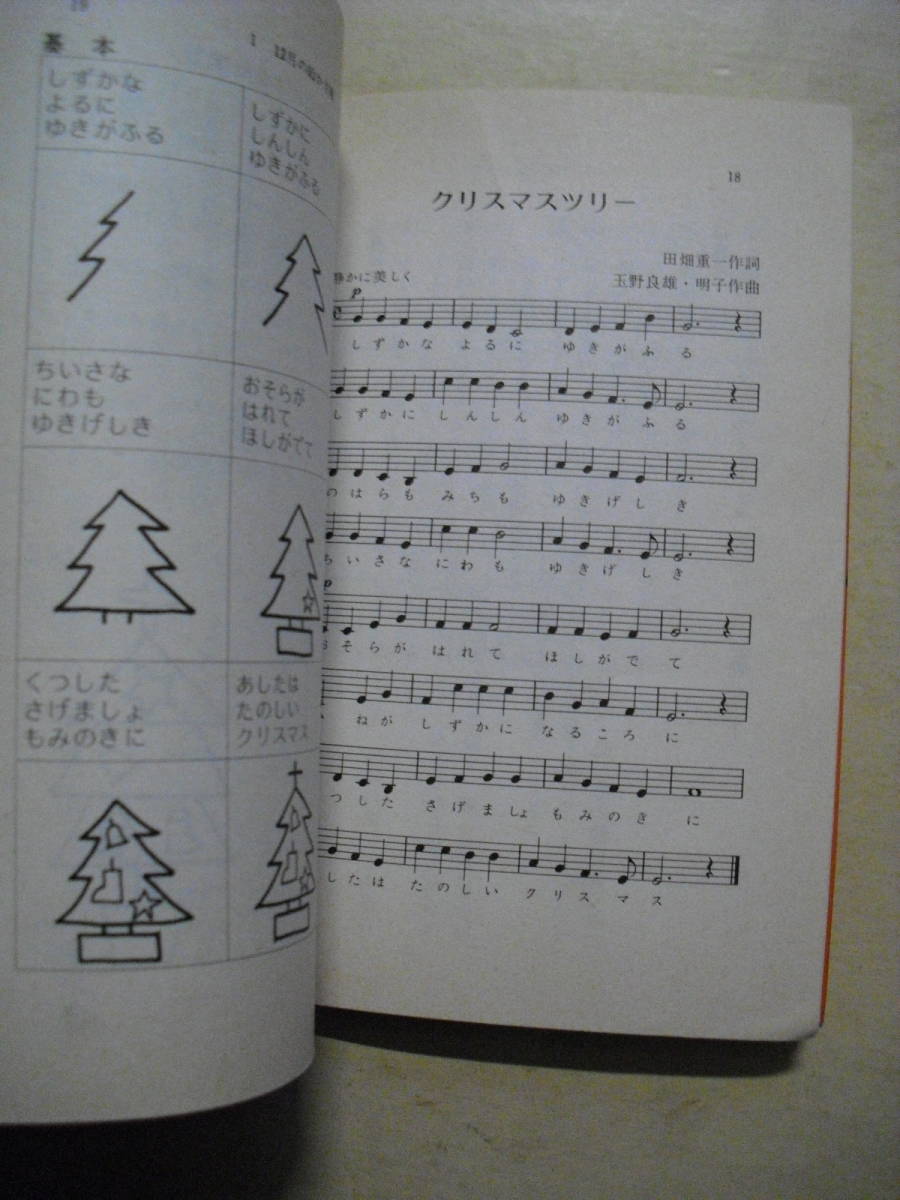 19
1 12月の
基本
しずかな
よるに
ゆきがふる
しずかに
しんしん
ゆきがふる
ちいさな
にわも
ゆきげしき
おそらが
はれて
ほしがでて
くつした
さげましょ
もみのきに
あしたは
たのしい
クリスマス
18
クリスマスツリー
田畑重一作詞
玉野良雄・明子作曲
静かに美しく
p
しずかな よるに ゆきがふる
しずかに しんしん ゆきがふる
のはらも みちも ゆきげしき
ちいさな にわも ゆきげしき
p
おそらが はれて ほしがでて
ねが しずかに なるころに
つした さげましょ もみのきに
したは たのしい クリスマス